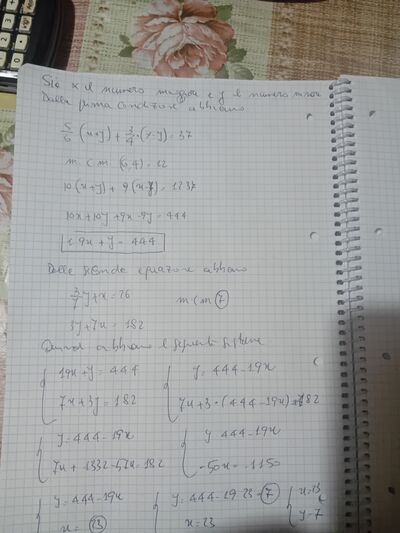 Sia x il numero maggiore e y il numero minore
Dalla prima condizione abbiamo
5/6 (x+y) + 3/4 · (x-y) = 37
m.c.m. (6,4) = 12
10(x+y) + 9(x-y) = 12·37
10x+10y+9x-9y = 444
19x + y = 444
Dalla seconda equazione abbiamo
3/7 y + x = 26 mcm 7
3y + 7x = 182
Quindi abbiamo il seguente sistema
19x + y = 444 y = 444 - 19x
7x + 3y = 182 7x + 3·(444-19x) = 182
y = 444 - 19x y 444 - 19x
7x + 1332 - 57x = 182 -50x = -1150
y = 444 - 19x y = 444 - 19·23 = 7 x = 23
x = 23 x = 23 y = 7